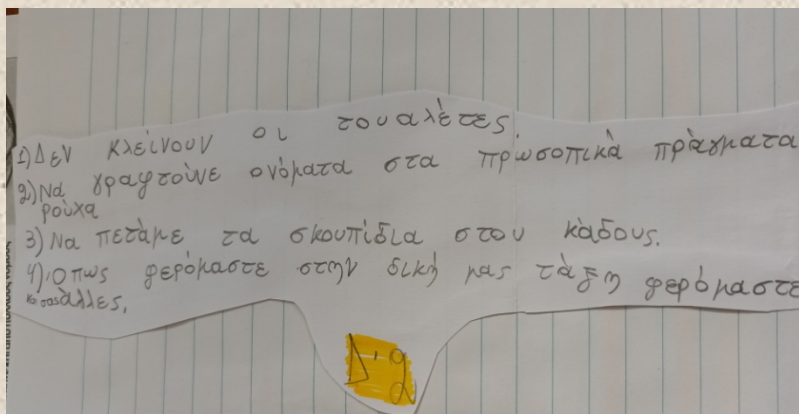 1) Δεν κλείνουν οι τουαλέτες.
2) Να γραφτούνε ονόματα στα πρωσοπικά πράγματα
ρούχα
3) Να πετάμε τα σκουπίδια στου κάδους.
4) Όπως φερόμαστε στην δική μας τάξη φερόμαστε
και σας άλλες.
Δ'2